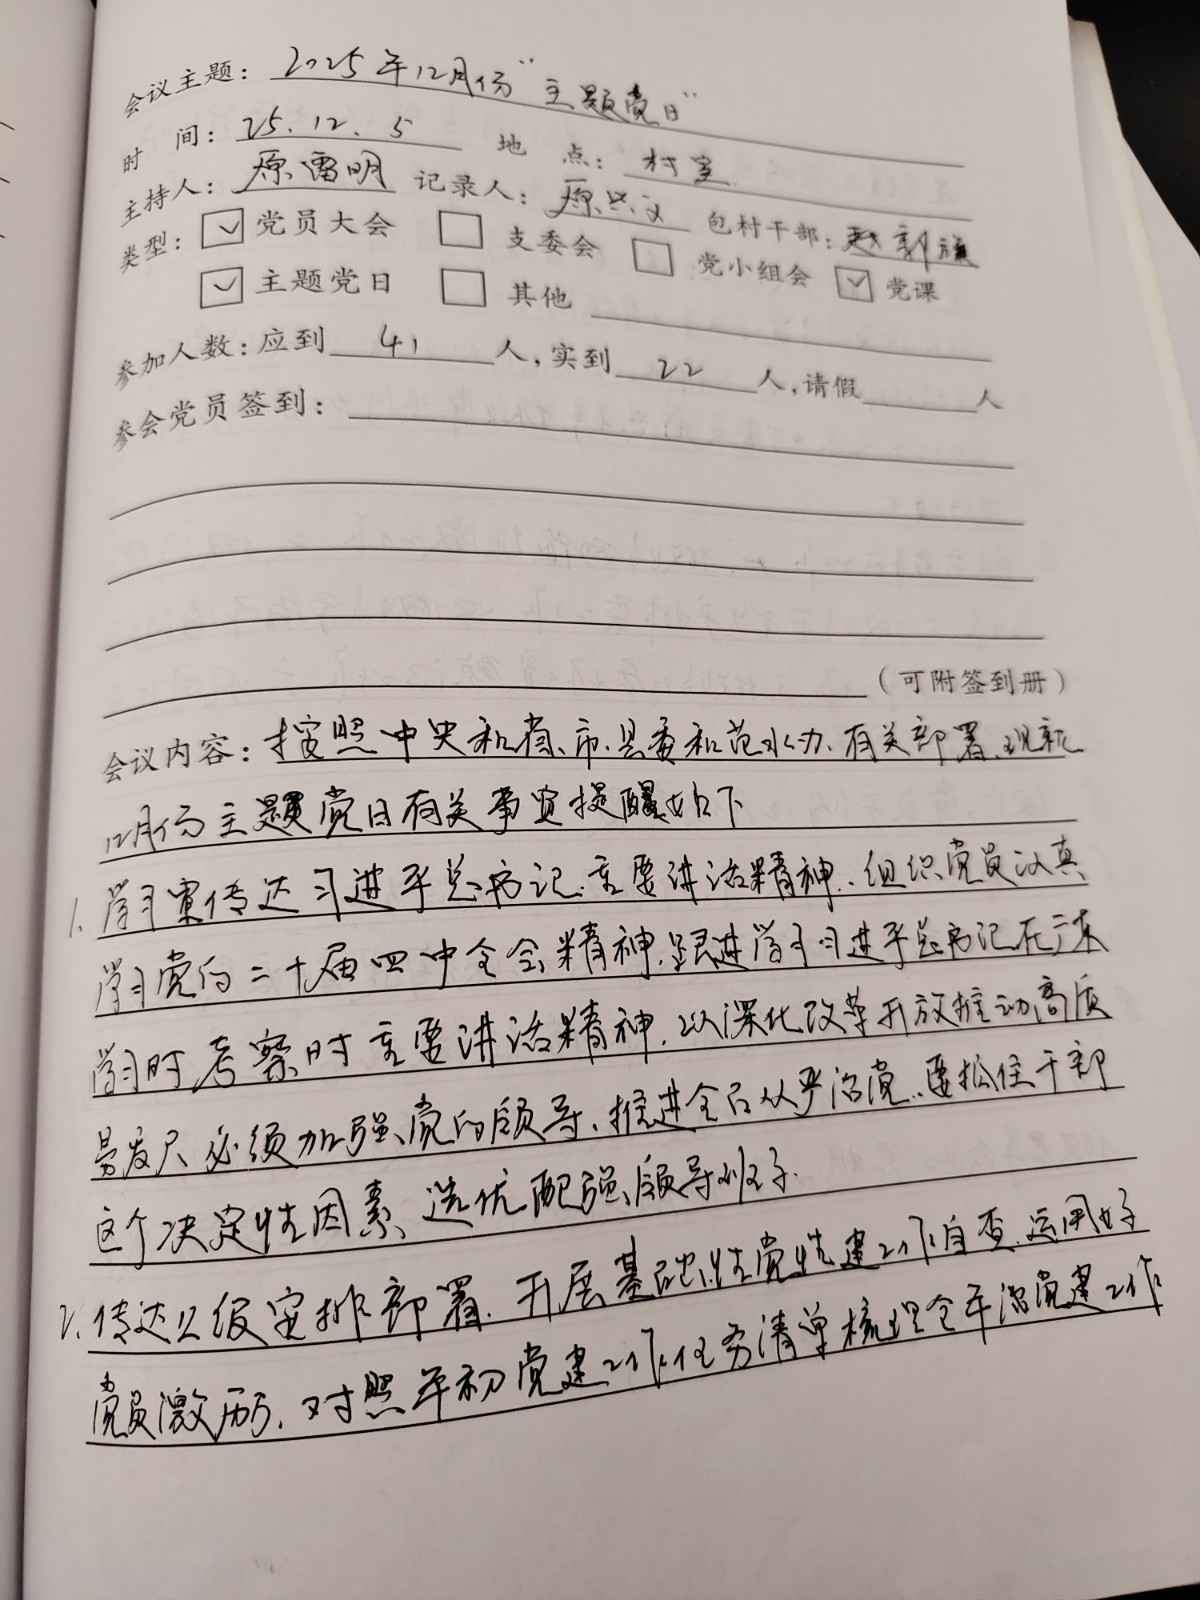 会议主题：2025年12月份“主题党日”
时 间：25.12.5 地 点：村室
主持人：原雷明 记录人：原兴义 包村干部：赵
类型：☑党员大会 □支委会 □党小组会 ☑党课
☑主题党日 □其他
参加人数：应到41人，实到22人，请假 人
参会党员签到：
（可附签到册）
会议内容：按照中央和省、市、县委和范水办、有关部署、现就
12月份主题党日有关事宜提醒如下
1. 学习宣传达习进平总书记重要讲话精神，组织党员认真
学习党的二十届四中全会精神，跟进学习习进平总书记在广东
学习时考察时重要讲话精神，以深化改革开放推动高质
量发展必须加强党的领导，推进全面从严治党，要抓住干部
这个决定性因素、选优配强领导班子.
2. 传达上级安排部署. 开展基础性党性建工作自查，运用好
党员激励、对照年初党建工作任务清单梳理全年治党建工作